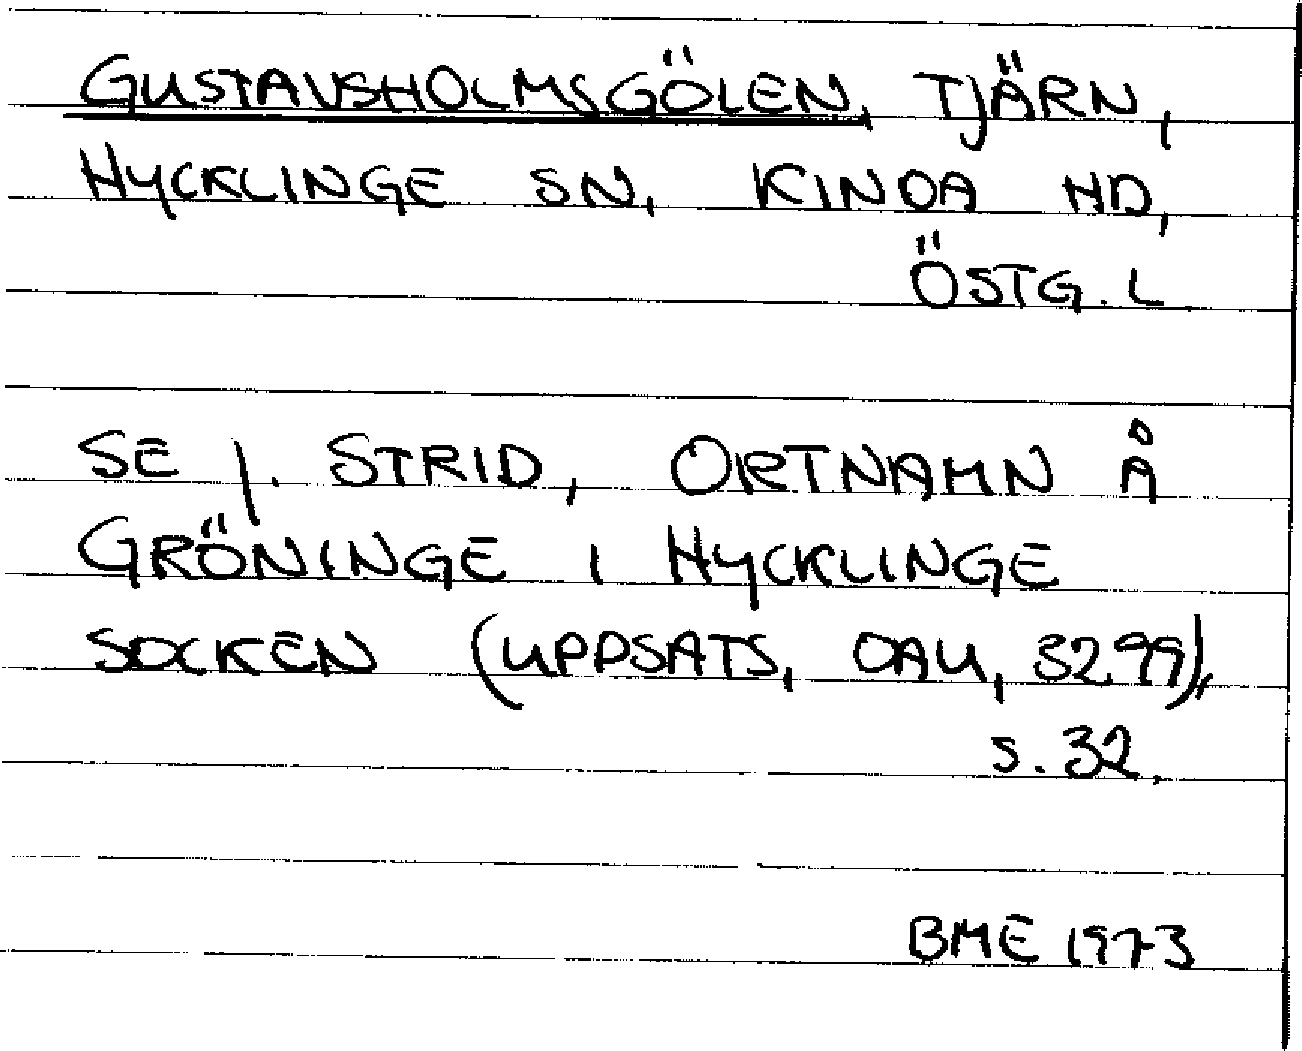 GUSTAVSHOLMSGÖLEN, TJÄRN,
HYCKLINGE SN, KINDA HD,
ÖSTG. L
SE J. STRID, ORTNAMN Å
GRÖNINGE I HYCKLINGE
SOCKEN (UPPSATS, OAU, 3299),
s. 32.
BME 1973